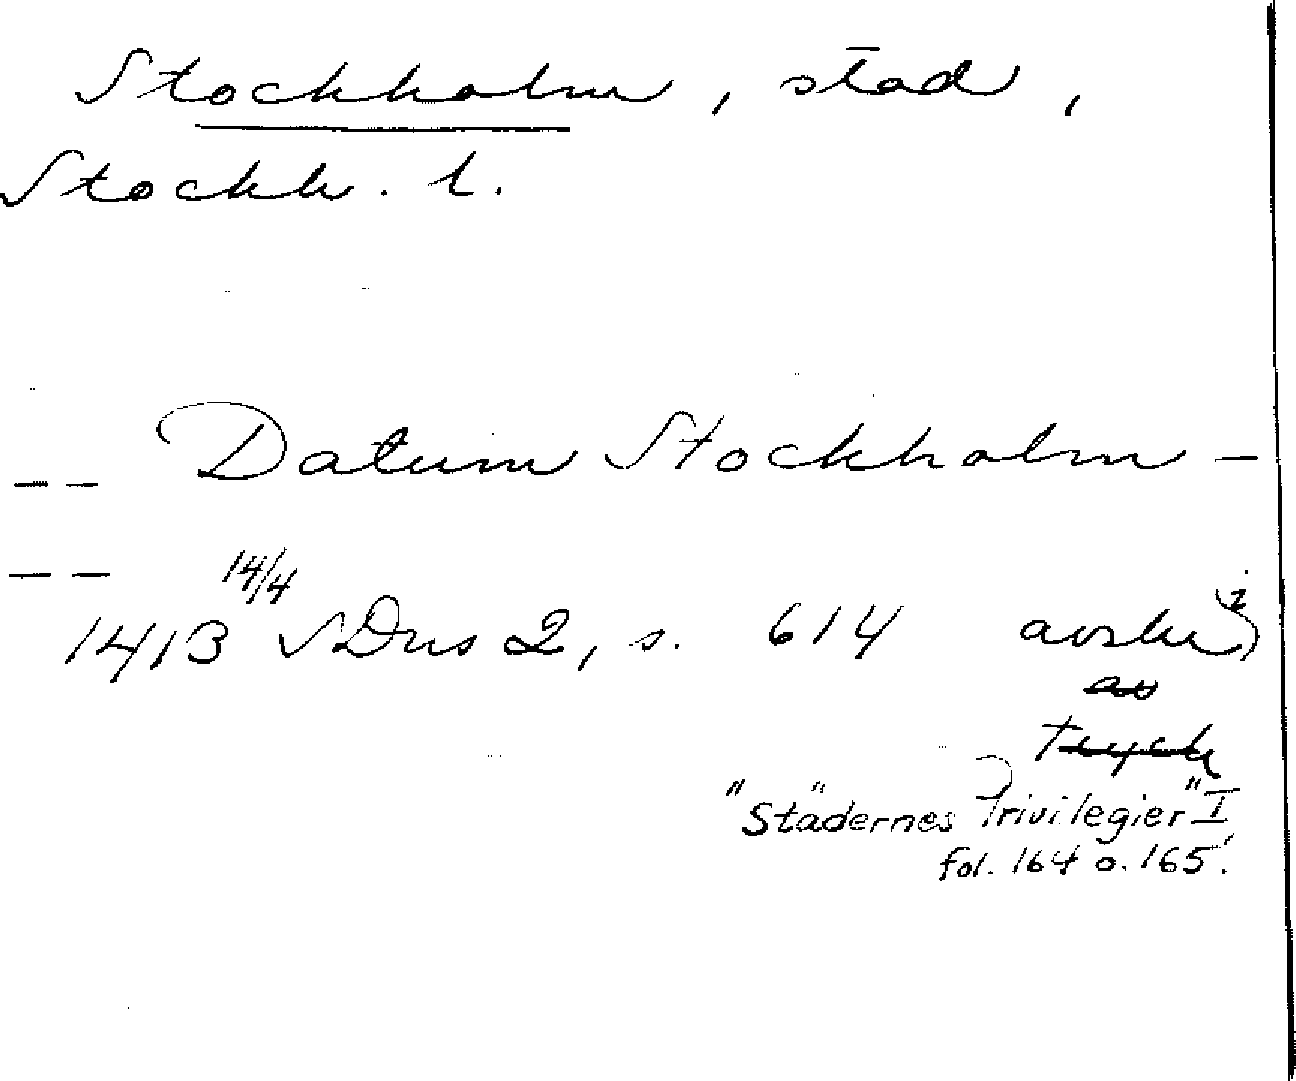 Stockholm, stad,
Stockh. l.
-- Datum Stockholm -
--
1413 14/4 SDns 2, s. 614 avskr i
av
tryck
"Städernes Privilegier" I,
fol. 164 o. 165.